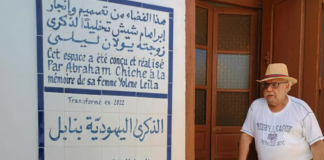 هذا الفضاء من تصميم وإنجاز
إبراهام شيش تخليدا لذكرى
زوجته يولان ليلى
Cet espace a été conçu et réalisé
Par Abraham Chiche à la
mémoire de sa femme Yolene Leïla
Transformé en 2022
الذكرى اليهودية بنابل